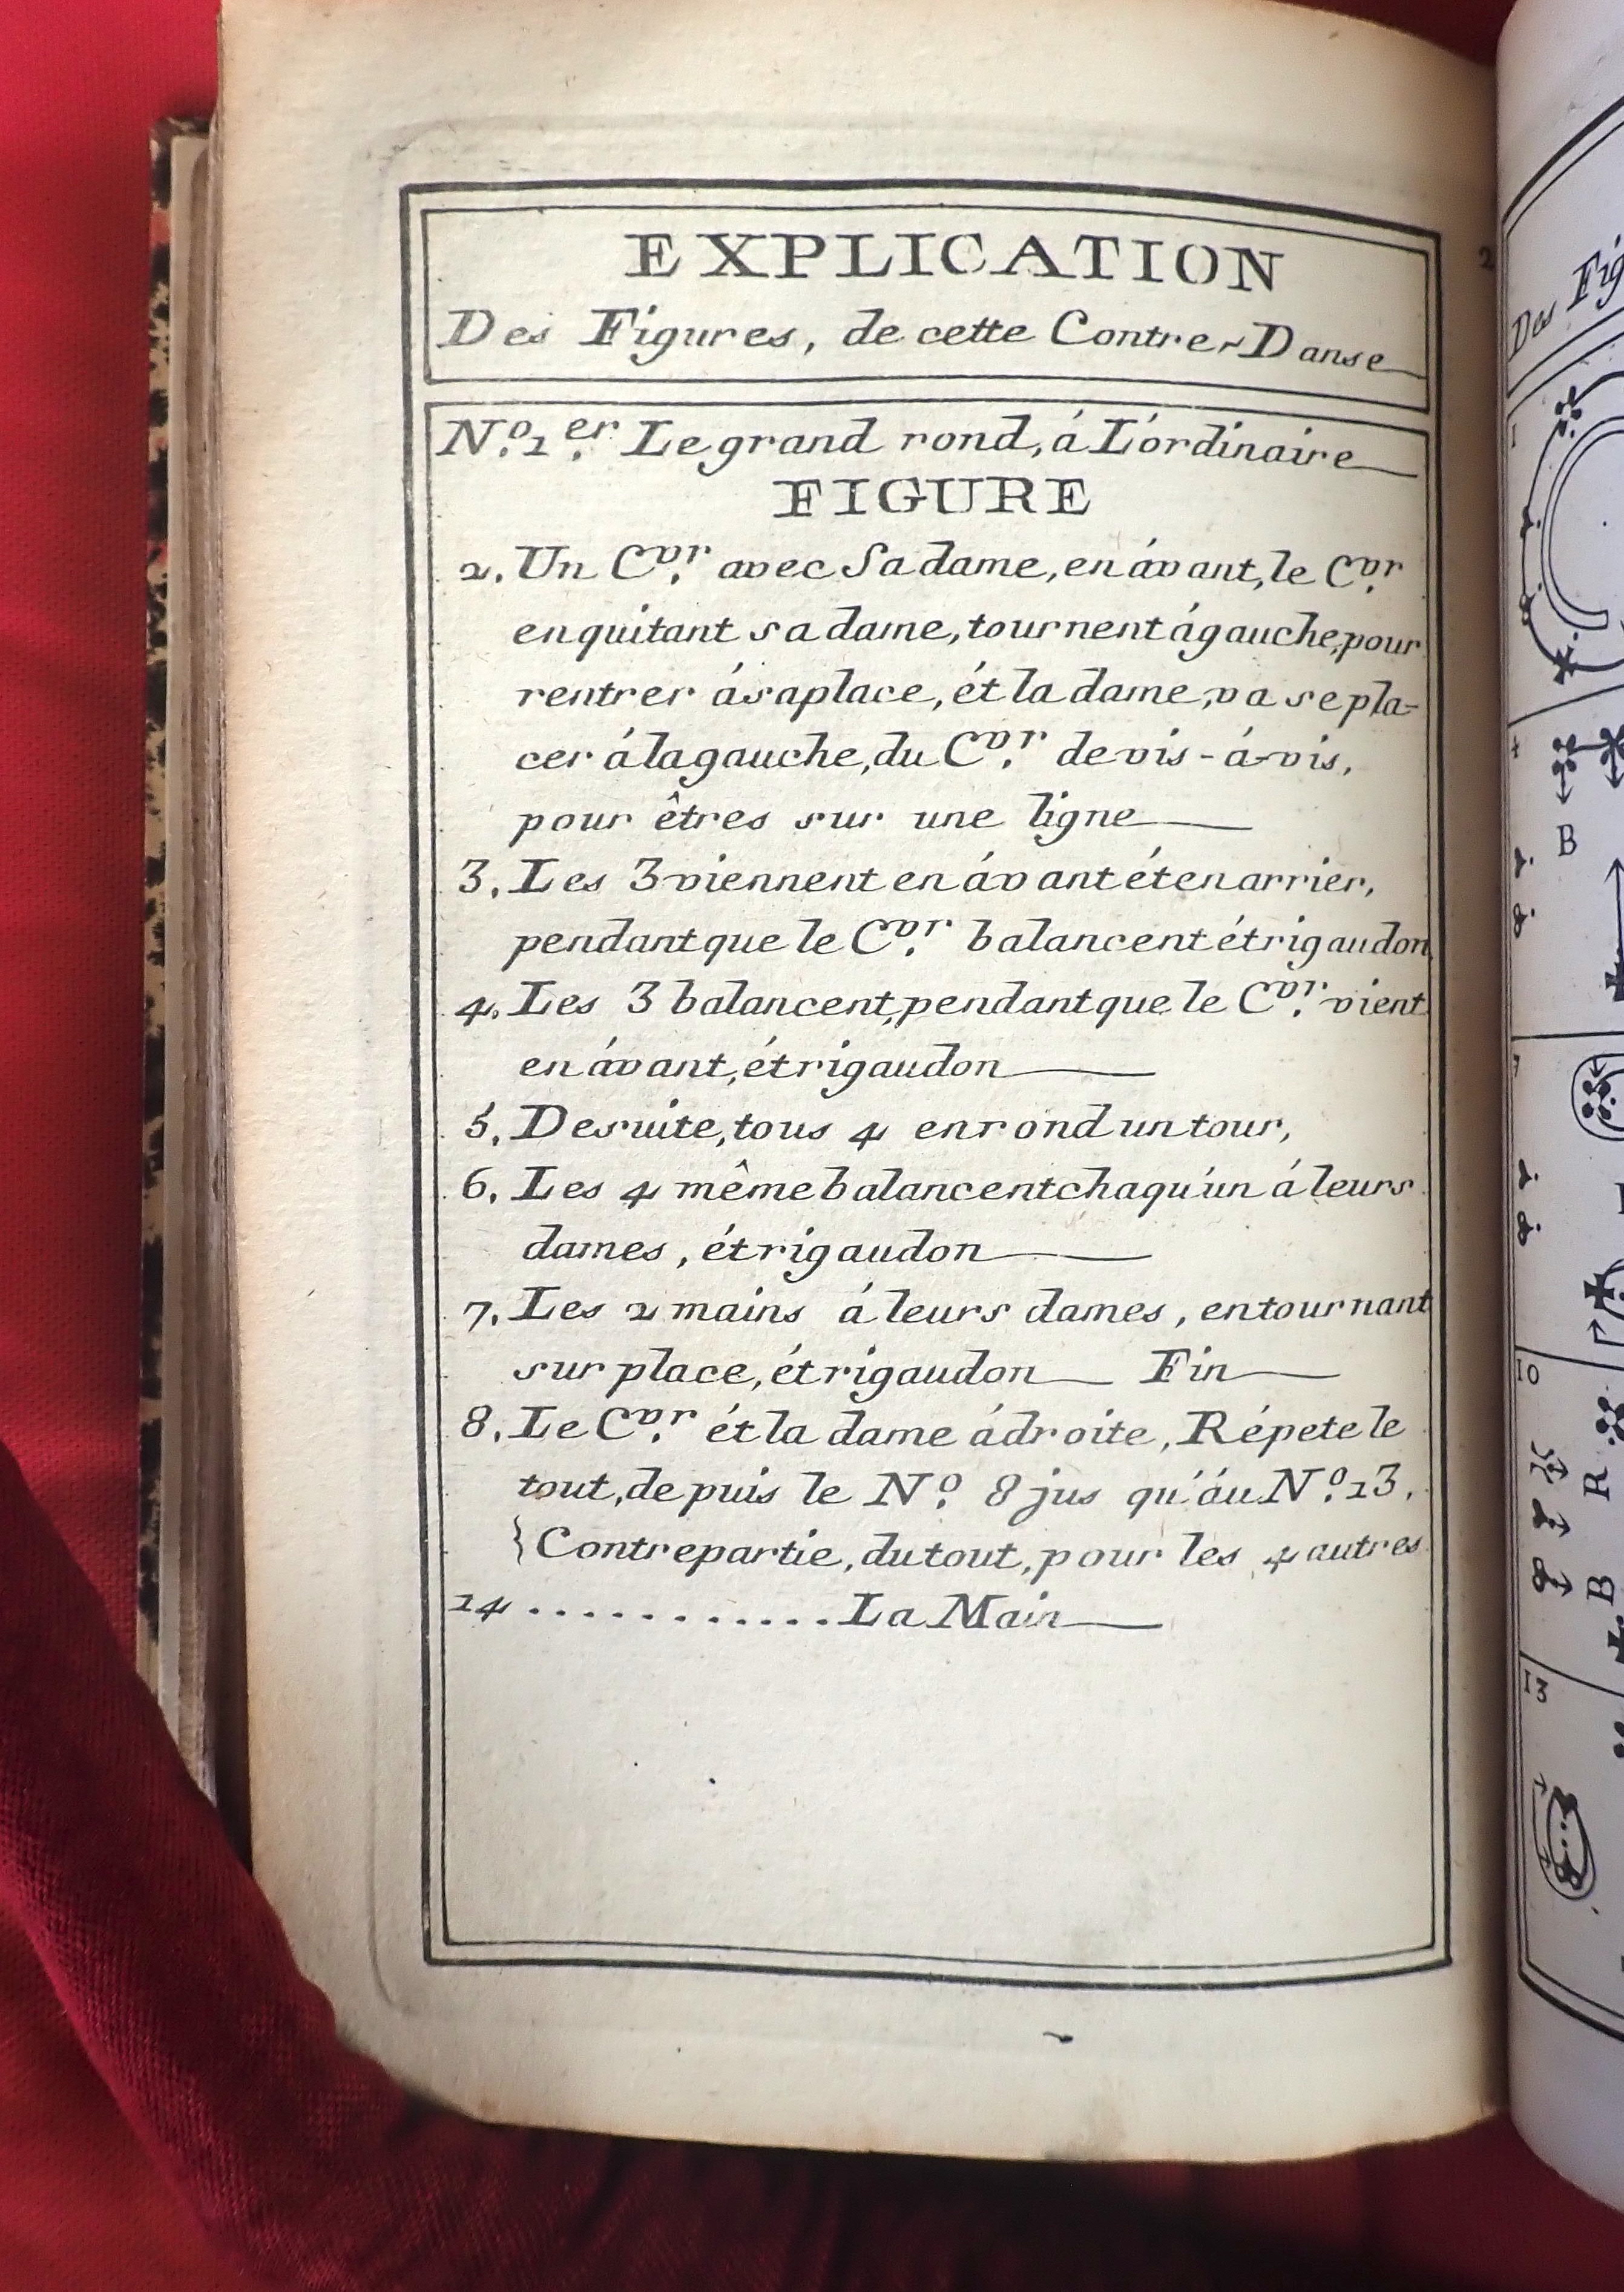 EXPLICATION
Des Figures, de cette Contre-Danse
N.º 1.er Le grand rond, á L'ordinaire
FIGURE
2. Un C.vr avec Sa dame, en ávant, le C.vr
en quitant sa dame, tournent á gauche, pour
rentrer á sa place, ét la dame, va se pla-
cer á la gauche, du C.vr de vis-á-vis,
pour êtres sur une ligne
3. Les 3 viennent en ávant ét en arrier,
pendant que le C.vr balancent ét rigaudon
4. Les 3 balancent, pendant que le C.vr vient
en ávant, ét rigaudon
5. De suite, tous 4 en rond un tour,
6. Les 4 même balancent chaqu'un á leurs
dames, ét rigaudon
7. Les 2 mains á leurs dames, en tournant
sur place, ét rigaudon Fin
8. Le C.vr ét la dame á droite, Répete le
tout, de puis le N.º 8 jus qu'áu N.º 13.
} Contrepartie, du tout, pour les 4 autres
14 ............ La Main
2
Des Fig
1
4
B
7
10
R
B
13